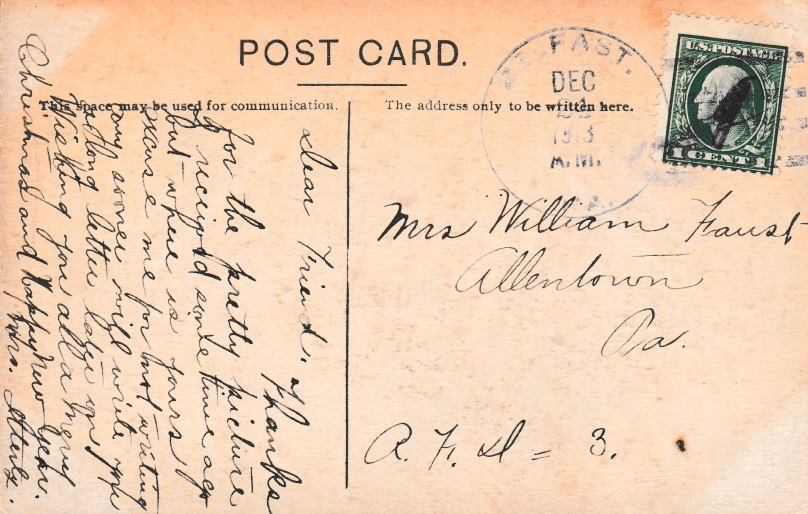 POST CARD.
This space may be used for communication.
The address only to be written here.
BELFAST.
DEC
1913
A.M.
PA.
U.S. POSTAGE
1 CENT 1
Mrs William Faust
Allentown
Pa.
R. F. D = 3.
Dear Friend. Thanks
for the pretty picture
I recieved some time ago
but where is yours,
excuse me for not writing
any sooner will write you
a long letter later on,
Wishing you all a Merry
Christmas and Happy New Year.
Mrs.